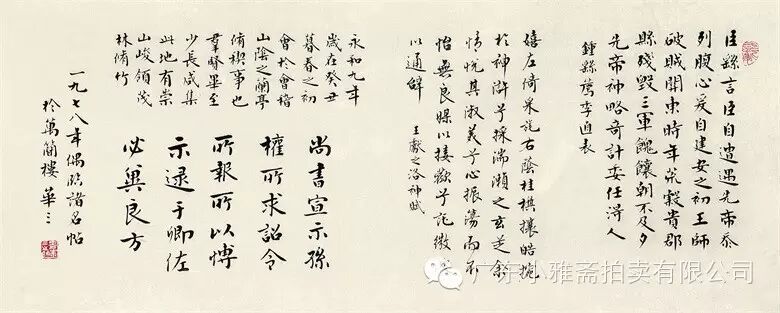 臣繇言臣自遭遇先帝忝
列腹心爰自建安之初王師
破賊關東時年荒穀貴郡
縣殘毀三軍餽饟朝不及夕
先帝神略奇計委任得人
鍾繇薦季直表
嬉左倚采旄右蔭桂旗攘皓捥
於神滸兮採湍瀨之玄芝余
情悅其淑美兮心振蕩而不
怡無良媒以接歡兮託微
以通辭 王獻之洛神賦
永和九年
歲在癸丑
暮春之初
會於會稽
山陰之蘭亭
脩禊事也
羣賢畢至
少長咸集
此地有崇
山峻領茂
林脩竹
尚書宣示孫
權所求詔令
所報所以博
示逮于卿佐
必冀良方
一九七八年偶臨諸名帖
於萬蘭樓 華三
广东小雅斋拍卖有限公司